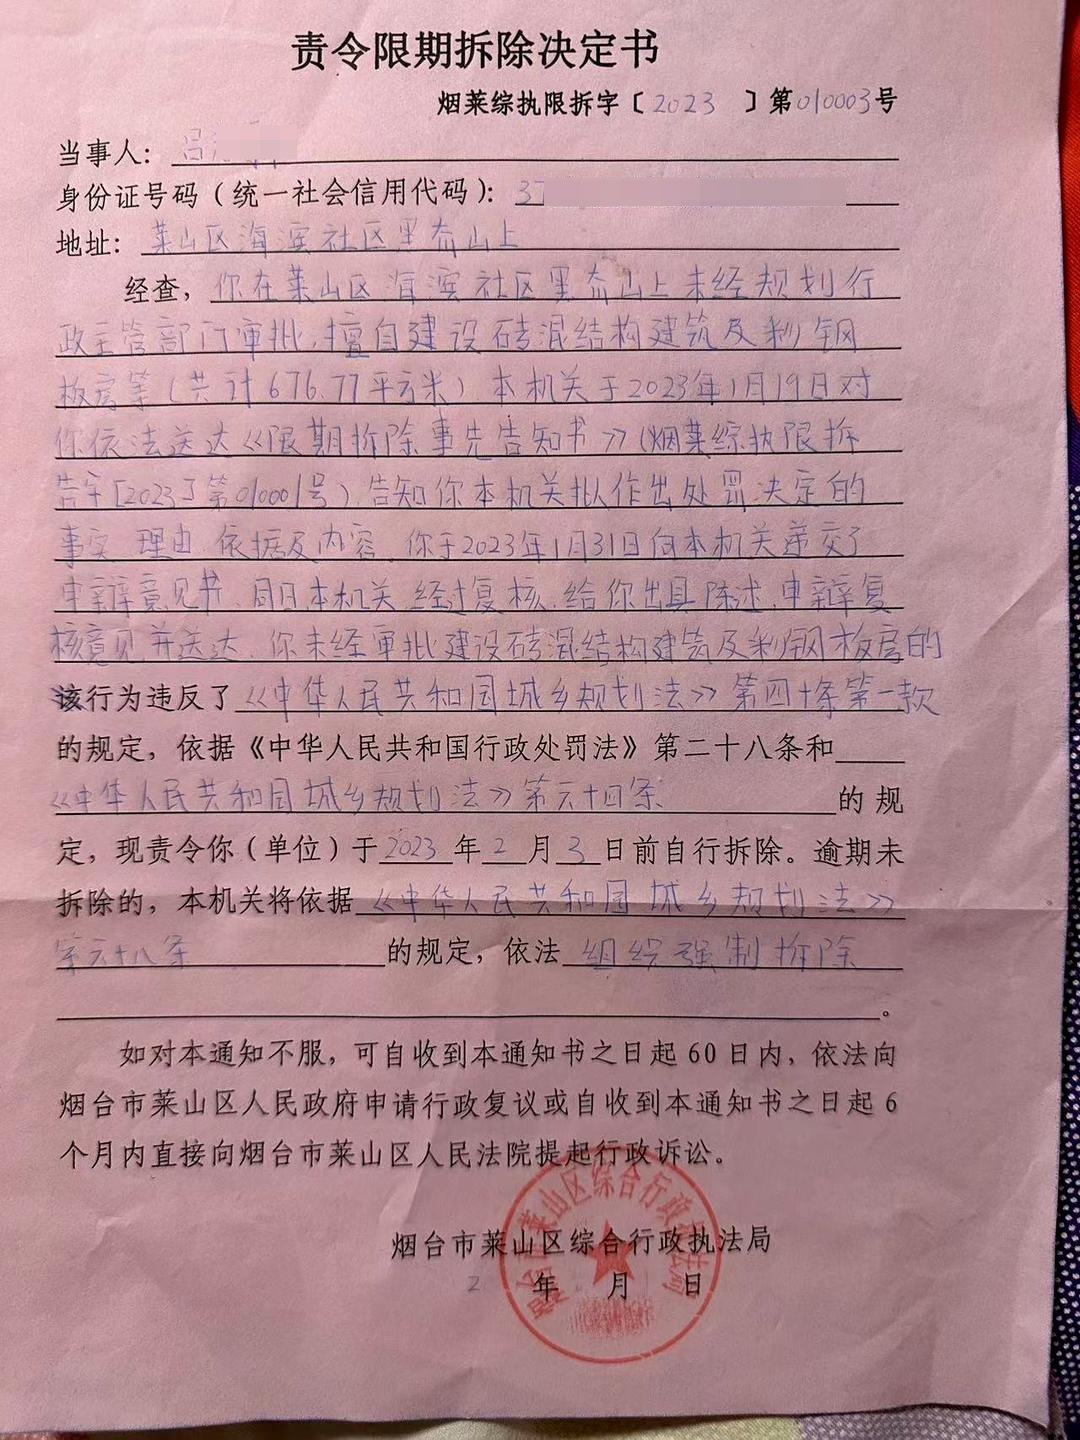 责令限期拆除决定书
烟莱综执限拆字〔2023〕第010003号
当事人：吕
身份证号码（统一社会信用代码）：37
地址：莱山区海滨社区黑夼山上
经查，你在莱山区海滨社区黑夼山上未经规划行
政主管部门审批，擅自建设砖混结构建筑及彩钢
板房等（共计676.77平方米）本机关于2023年1月19日对
你依法送达《限期拆除事先告知书》（烟莱综执限拆
告字[2023]第010001号）告知你本机关拟作出处罚决定的
事实 理由 依据及内容。你于2023年1月31日向本机关递交了
申辩意见书，同日本机关经过复核，给你出具陈述、申辩复
核意见并送达。你未经审批建设砖混结构建筑及彩钢板房的
该行为违反了《中华人民共和国城乡规划法》第四十条第一款
的规定，依据《中华人民共和国行政处罚法》第二十八条和
《中华人民共和国城乡规划法》第六十四条的规
定，现责令你（单位）于2023年2月3日前自行拆除。逾期未
拆除的，本机关将依据《中华人民共和国城乡规划法》
第六十八条的规定，依法组织强制拆除
。
如对本通知不服，可自收到本通知书之日起60日内，依法向
烟台市莱山区人民政府申请行政复议或自收到本通知书之日起6
个月内直接向烟台市莱山区人民法院提起行政诉讼。
烟台市莱山区综合行政执法局
2 年 月 日
烟台市莱山区综合行政执法局